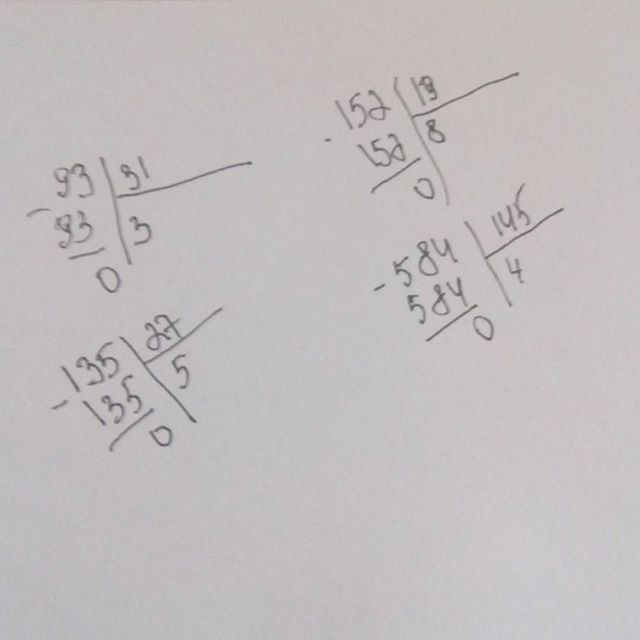 - 93 | 31
93 | 3
0
- 152 | 19
152 | 8
0
- 584 | 145
584 | 4
0
- 135 | 27
135 | 5
0